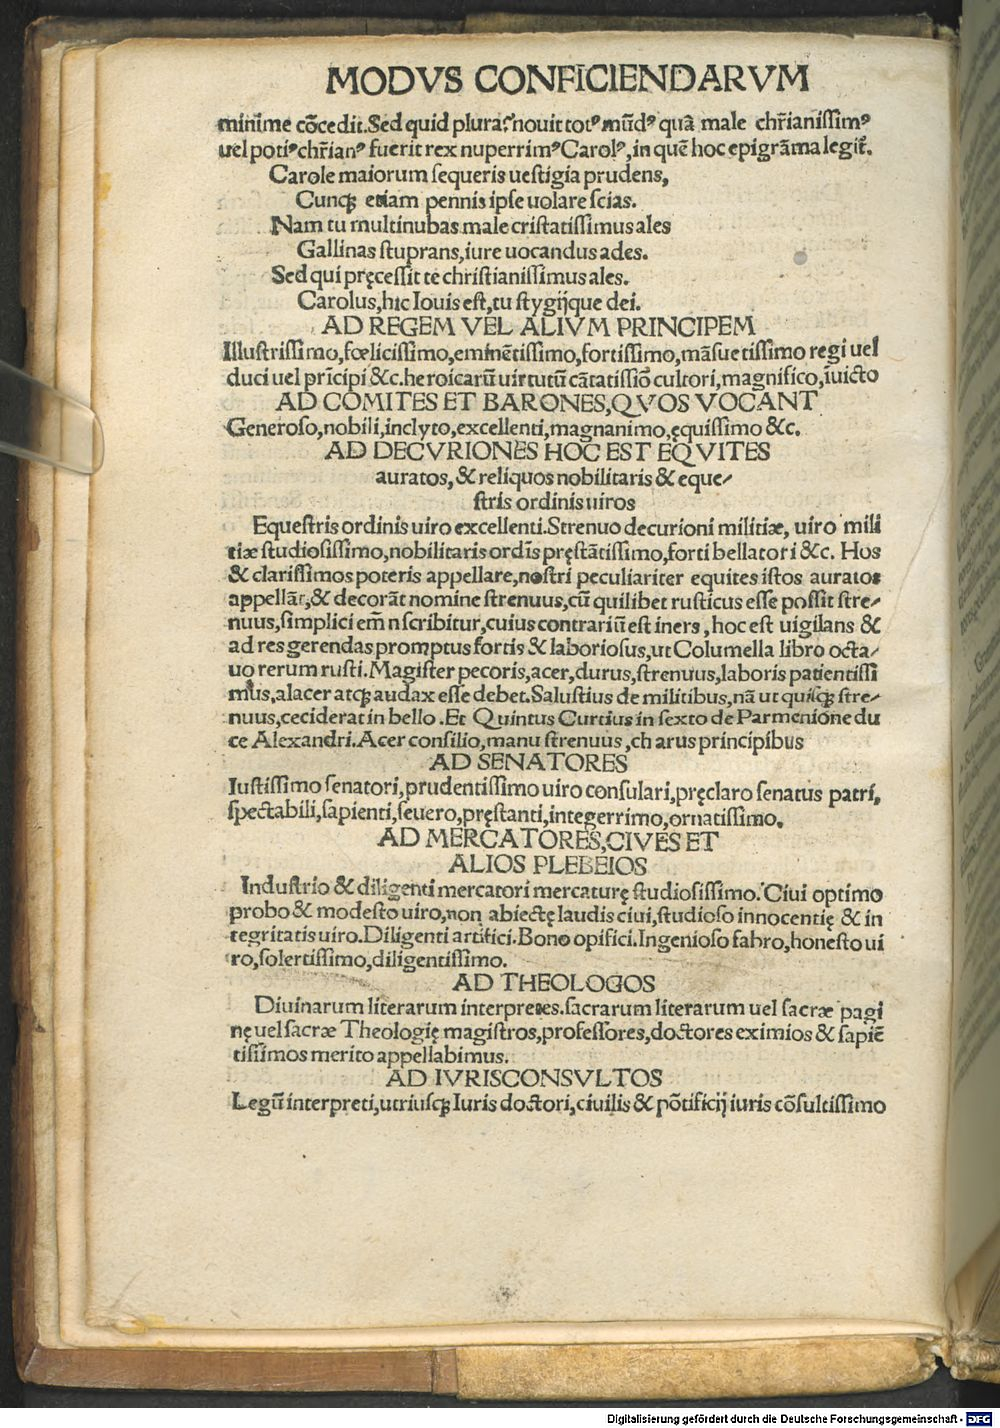 MODVS CONFICIENDARVM
minime cõcedit. Sed quid plura? nouit totꝰ mũdꝰ quã male chr̃ianissimꝰ
uel potiꝰ chr̃ianꝰ fuerit rex nuperrimꝰ Carolꝰ, in quẽ hoc epigrãma legit̃.
Carole maiorum sequeris uestigia prudens,
Cunqꝫ etiam pennis ipse uolare scias.
Nam tu multinubas male cristatissimus ales
Gallinas stuprans, iure uocandus ades.
Sed qui pręcessit te christianissimus ales.
Carolus, hic Iouis est, tu stygijque dei.
AD REGEM VEL ALIVM PRINCIPEM
Illustrissimo, fœlicissimo, eminẽtissimo, fortissimo, mãsuetissimo regi uel
duci uel prĩcipi &c. heroicarũ uirtutũ cãtatissiõ cultori, magnifico, ĩuicto
AD COMITES ET BARONES, QVOS VOCANT
Generoso, nobili, inclyto, excellenti, magnanimo, ęquissimo &c.
AD DECVRIONES HOC EST EQVITES
auratos, & reliquos nobilitaris & eque-
stris ordinis uiros
Equestris ordinis uiro excellenti. Strenuo decurioni militiæ, uiro mili
tiæ studiosissimo, nobilitaris ordĩs pręstãtissimo, forti bellatori &c. Hos
& clarissimos poteris appellare, nostri peculiariter equites istos auratos
appellãt, & decorãt nomine strenuus, cũ quilibet rusticus esse possit stre-
nuus, simplici em̃ n scribitur, cuius contrariũ est iners, hoc est uigilans &
ad res gerendas promptus fortis & laboriosus, ut Columella libro octa-
uo rerum rusti. Magister pecoris, acer, durus, strenuus, laboris patientissi
mus, alacer atqꝫ audax esse debet. Salustius de militibus, nã ut quisqꝫ stre-
nuus, ceciderat in bello. Et Quintus Curtius in sexto de Parmenione du
ce Alexandri. Acer consilio, manu strenuus, charus principibus
AD SENATORES
Iustissimo senatori, prudentissimo uiro consulari, pręclaro senatus patri,
spectabili, sapienti, seuero, pręstanti, integerrimo, ornatissimo.
AD MERCATORES, CIVES ET
ALIOS PLEBEIOS
Industrio & diligenti mercatori mercaturę studiosissimo. Ciui optimo
probo & modesto uiro, non abiectę laudis ciui, studioso innocentię & in
tegritatis uiro. Diligenti artifici. Bono opifici. Ingenioso fabro, honesto ui
ro, solertissimo, diligentissimo.
AD THEOLOGOS
Diuinarum literarum interpretes. sacrarum literarum uel sacræ pagi
nę uel sacræ Theologię magistros, professores, doctores eximios & sapiẽ
tissimos merito appellabimus.
AD IVRISCONSVLTOS
Legũ interpreti, utriusqꝫ Iuris doctori, ciuilis & põtificij iuris cõsultissimo
Digitalisierung gefördert durch die Deutsche Forschungsgemeinschaft - DFG